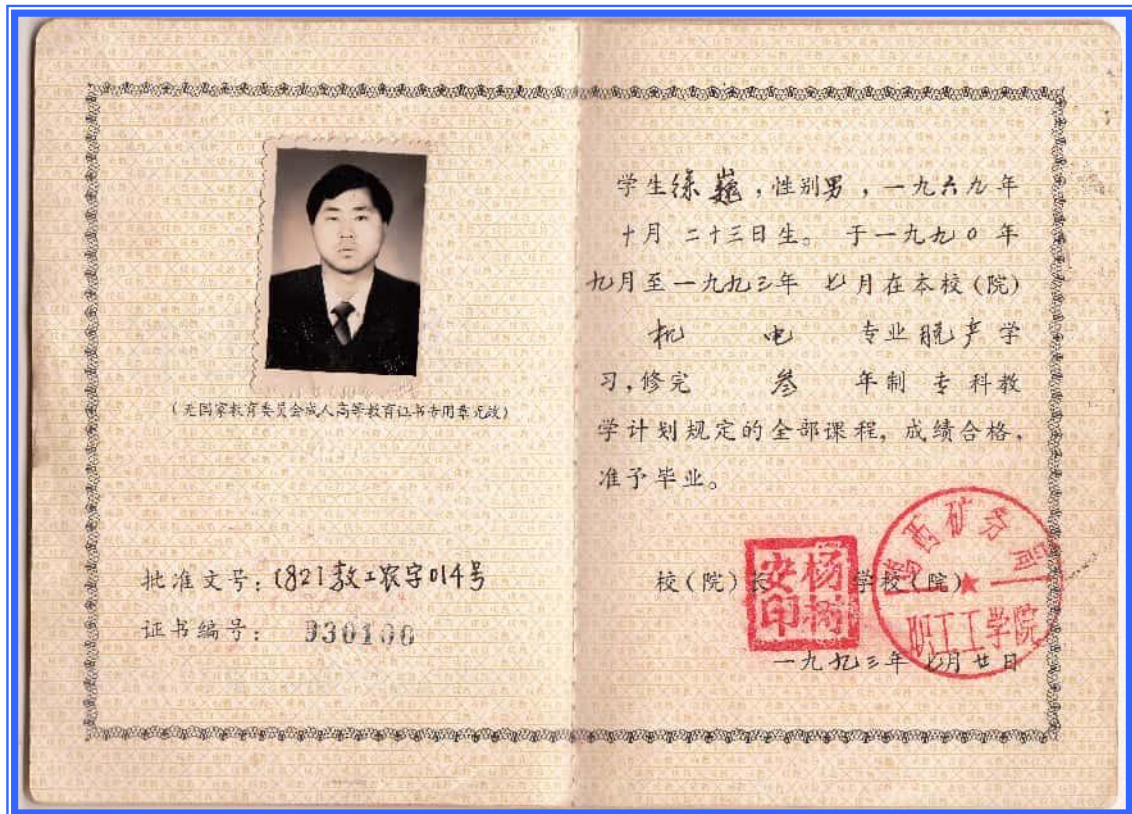 (无国家教育委员会成人高等教育证书专用章无效)
批准文号:(82)教工农字014号
证书编号: 930100
学生徐巍,性别男,一九六九年
十月 二十三日生。于一九九0年
九月至一九九三年 七月在本校(院)
机 电 专业脱产学
习,修完 叁 年制 专科教
学计划规定的全部课程,成绩合格,
准予毕业。
校(院)长 学校(院)
杨树安印
鸡西矿务局
职工工学院
一九九三年 七月廿日